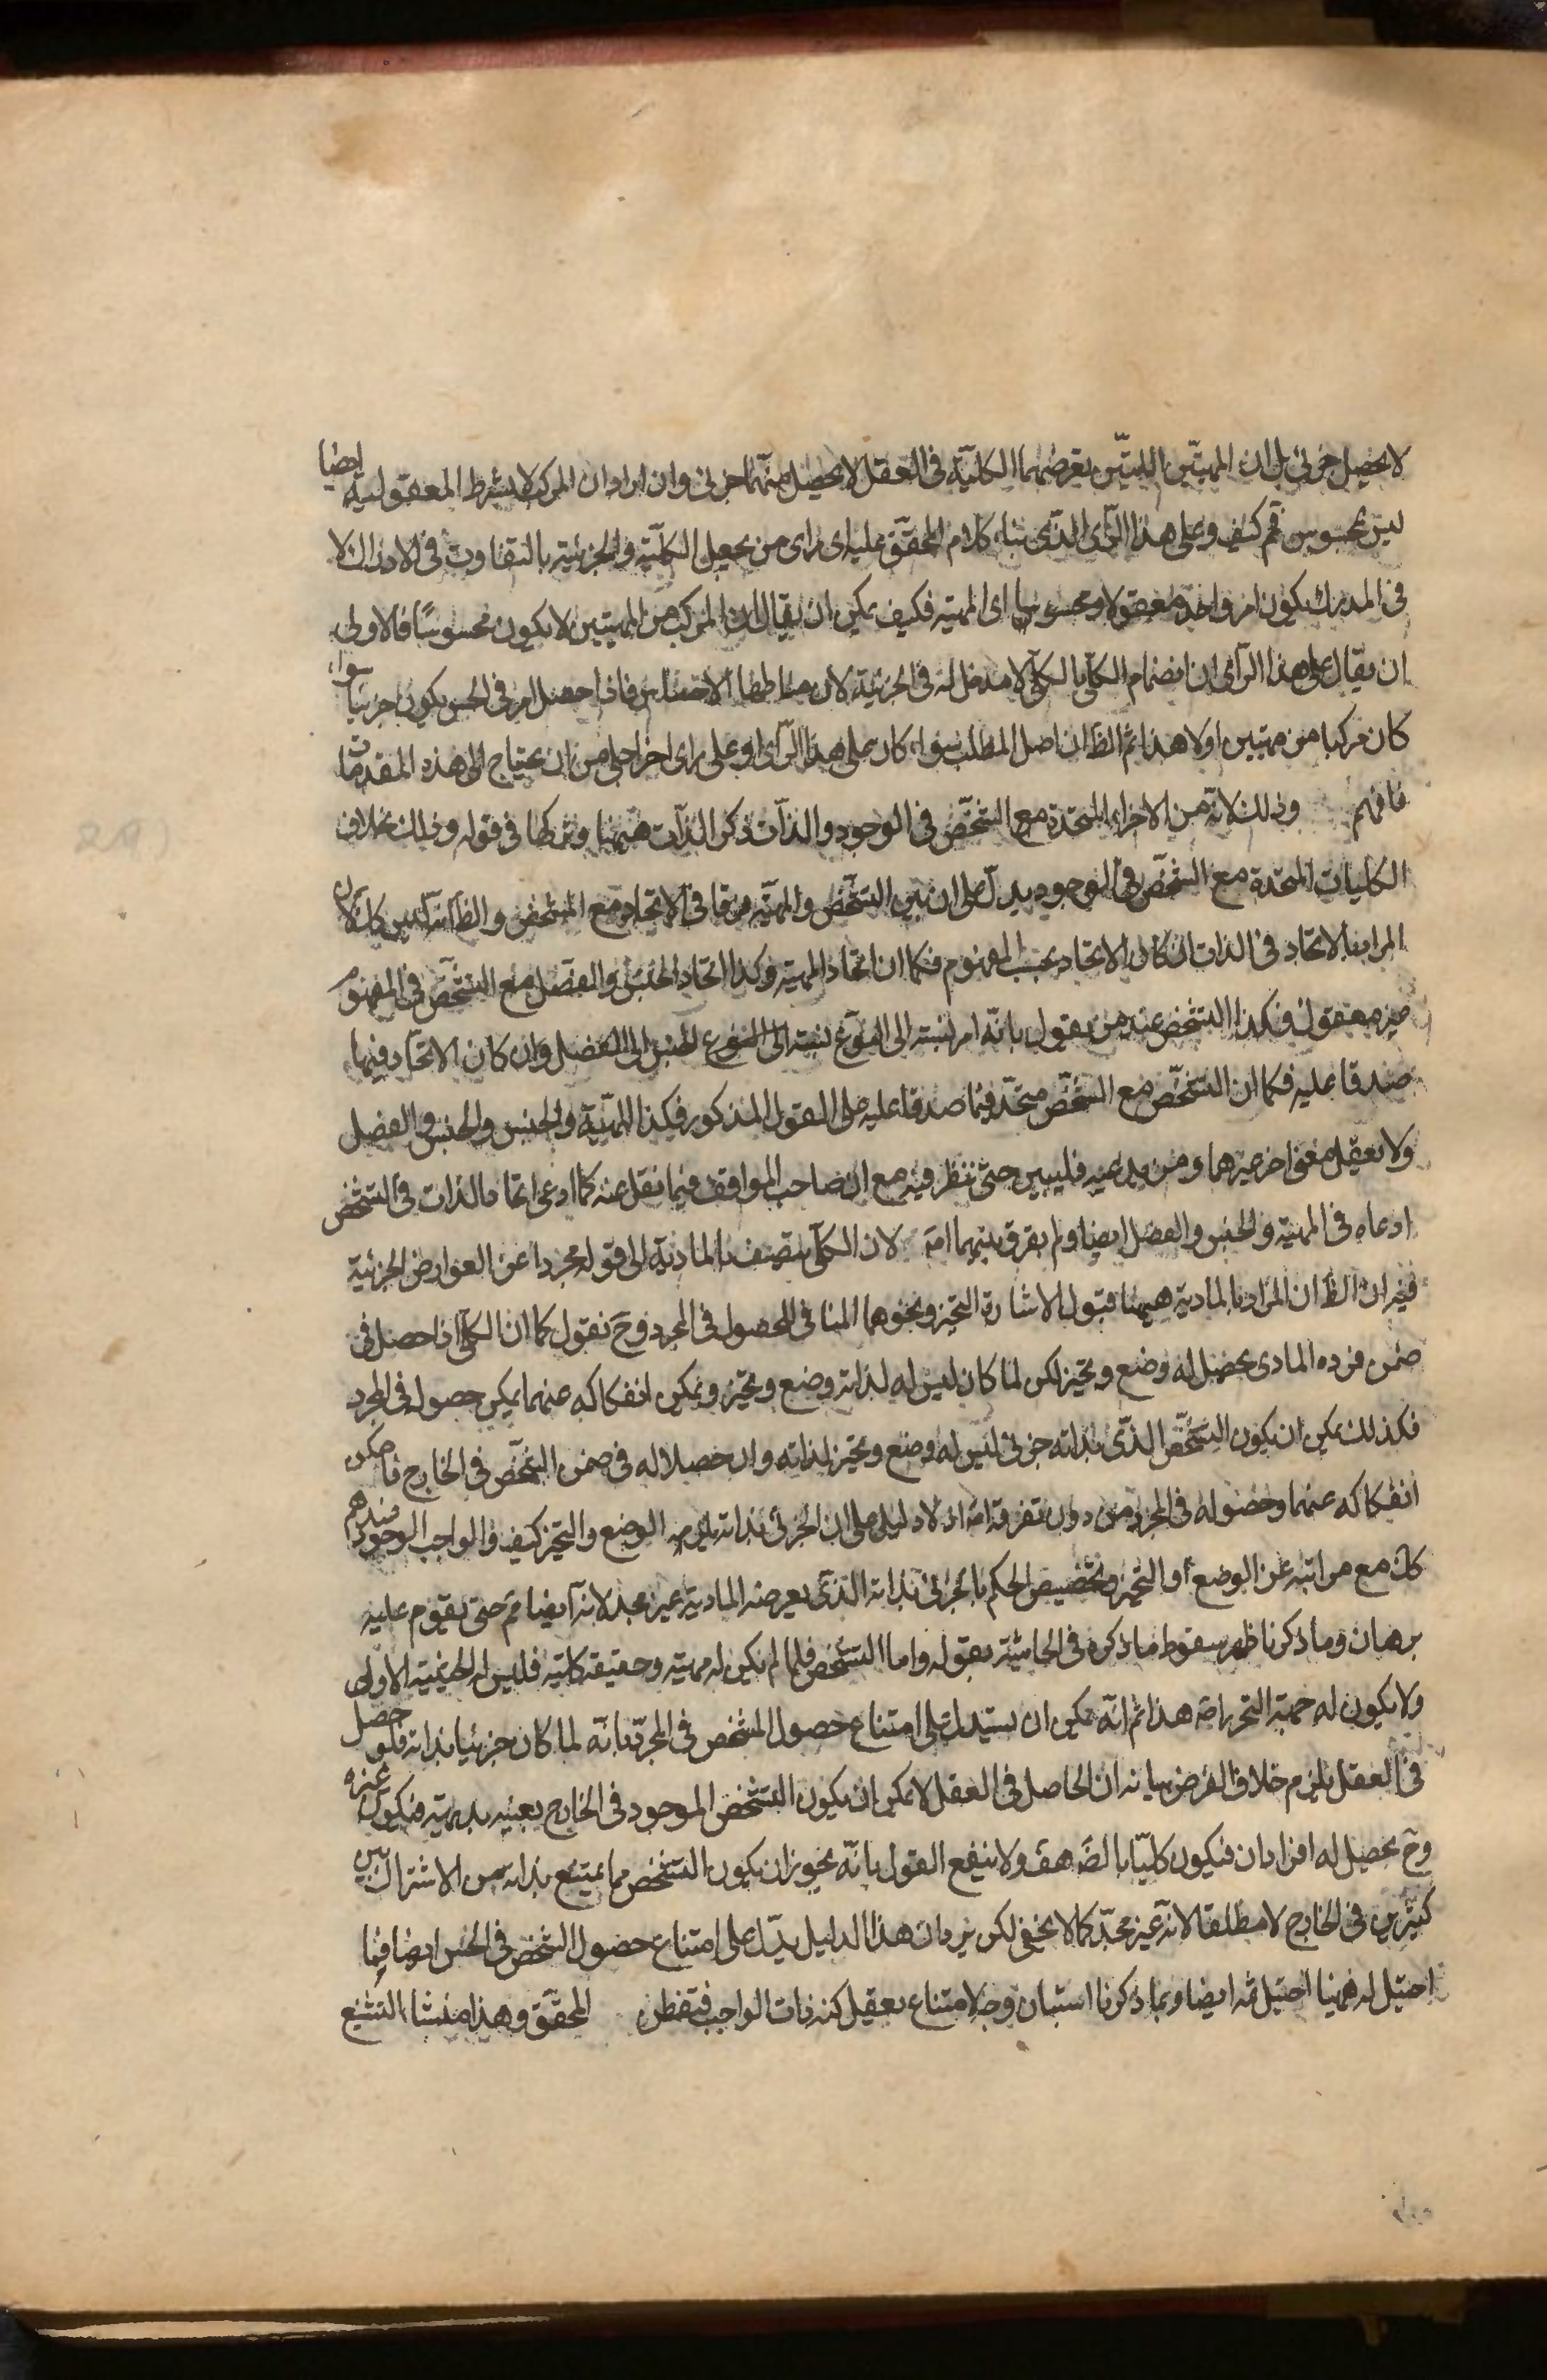 لا يحصل جزئى بل ان المهيتين اللتين يعرضهما الكلية فى العقل لا يحصل منهما جزئى وان اراد ان المركب لا بشرط المعقولية ايضا
ليس بمحسوس فم كيف وعلى هذا الراى الذى بناء كلام المحقق عليه اى راى من يجعل الكلية والجزئية بالتفاوت فى الادراك لا
فى المدرك يكون امر واحد معقولا ومحسوسا اى المهية فكيف يمكن ان يقال ان المركب من المهيتين لا يكون محسوسا فالاولى
ان يقال على هذا الراى ان انضمام الكلى بالكلى لا مدخل له فى الجزئية لان مناطها الاحساس فاذا حصل امر فى الحس يكون جزئيا سواء
كان مركبا من مهيتين اولا هذا ثم الظ ان اصل المطلب سواء كان على هذا الراى او على راى اخر اجلى من ان يحتاج الى هذه المقدمات
فافهم وذلك لانه من الاجزاء المتحدة مع الشخص فى الوجود والذات ذكر الذات ههنا وتركها فى قوله وذلك بخلاف
الكليات المتحدة مع الشخص فى الوجود يدل على ان بين التشخص والمهية فرقا فى الاتحاد مع الشخص والظ انه ليس كك لان
المراد بالاتحاد فى الذات ان كان الاتحاد بحسب المفهوم فكما ان اتحاد المهية وكذا اتحاد الجنس والفصل مع الشخص فى المفهوم
غير معقول فكذا التشخص عند من يقول بانه امر نسبته الى النوع نسبته الى النوع الجنس الى الفصل وان كان الاتحاد فيما
صدقا عليه فكما ان التشخص مع الشخص متحد فيما صدقا عليه على القول المذكور فكذا المهية والجنس والجنس والفصل
ولا يعقل معنى اخر غيرهما ومن يدعيه فليبين حتى ننظر فيه مع ان صاحب المواقف فيما نقل عنه كما ادعى اتحادا بالذات فى التشخص
ادعاه فى المهية والجنس والفصل ايضا ولم يفرق بينهما اصه لان الكلى يتصف بالمادية الى قوله مجردا عن العوارض الجزئية
فيه ان الظ ان المراد بالمادية ههنا قبول الاشارة والتحيز ونحوهما المنافى للحصول فى المجرد وح نقول كما ان الكلى اذا حصل فى
ضمن فرده المادى يحصل له وضع وتحيز لكن لما كان ليس له لذاته وضع وتحيز ويمكن انفكاكه عنهما يمكن حصوله فى المجرد
فكذلك يمكن ان يكون التشخص الذى بذاته جزئى ليس له وضع وتحيز لذاته وان حصلا له فى ضمن الشخص فى الخارج فامكن
انفكاكه عنهما وحصوله فى المجرد من دون تفرقة اصه اذ لا دليل على ان الجزئى بذاته يلزمه الوضع والتحيز كيف والواجب الوجود عندهم
كك مع مراتبه عن الوضع والتحيز وتخصيص الحكم بالجزئى بذاته الذى يعرضه المادية غير مجد لانه ايضا فم حتى يقوم عليه
برهان وما ذكرنا ظهر سقوط ما ذكره فى الحاشية بقوله واما التشخص فلما لم يكن له مهية وحقيقة كلية فليس له الحيثية الاولى
ولا يكون له جهة التجرد اصه هذا ثم انه يمكن ان يستدل على امتناع حصول المشخص فى المجرد بانه لما كان جزئيا بذاته فلو حصل
فى العقل يلزم خلاف الفرض بيانه ان الحاصل فى العقل لا يمكن ان يكون التشخص الموجود فى الخارج بعينه بديهة فيكون غيره
وح يحصل له افراد ان فيكون كليا بالضه هف ولا ينفع القول بانه يجوز ان يكون التشخص مما يمتنع بذاته من الاشتراك بين
كثيرين فى الخارج لا مطلقا لانه غير مجد كما لا يخفى لكن يرد ان هذا الدليل يدل على امتناع حصول الشخص فى الحس ايضا فما
احتيل له ههنا احتيل ثمه ايضا وبما ذكرنا استبان وجه لامتناع تعقل كنه ذات الواجب فتفطن المحقق وهذا منشاء التشنيع